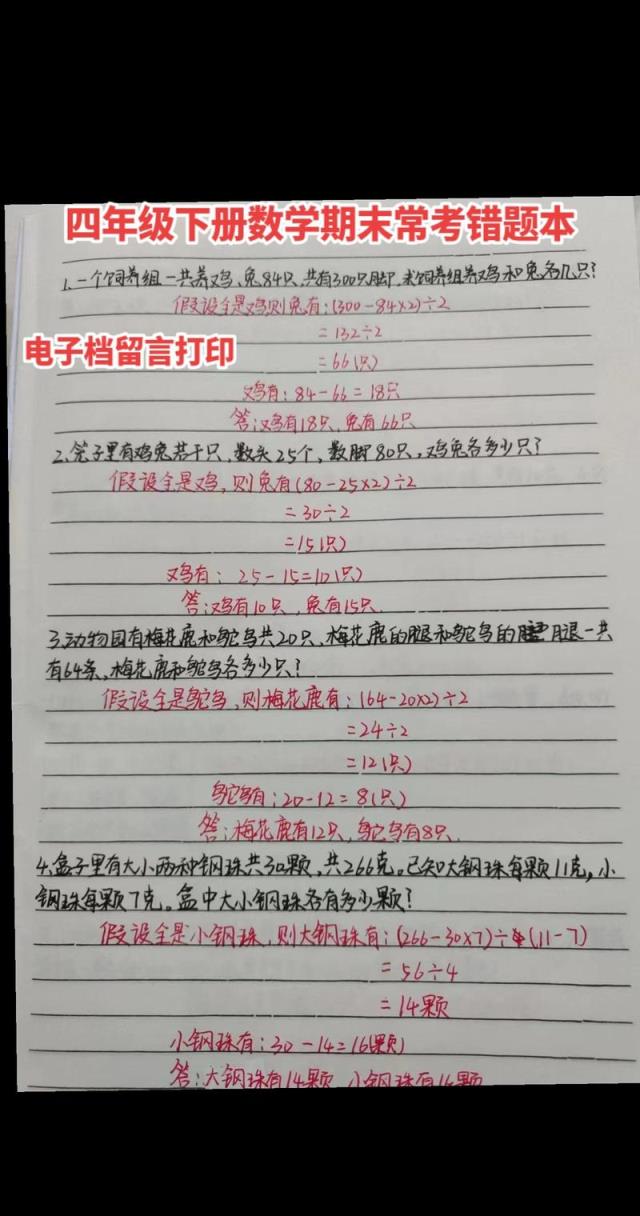 四年级下册数学期末常考错题本
1.一个饲养组一共养鸡、兔84只,共有300只脚,求饲养组养鸡和兔各几只?
假设全是鸡则兔有:(300-84×2)÷2
=132÷2
电子档留言打印
=66(只)
鸡有:84-66=18只
答:鸡有18只,兔有66只
2.笼子里有鸡兔若干只,数头25个,数脚80只,鸡兔各多少只?
假设全是鸡,则兔有(80-25×2)÷2
=30÷2
=15(只)
鸡有:25-15=10(只)
答:鸡有10只,兔有15只
3.动物园有梅花鹿和鸵鸟共20只,梅花鹿的腿和鸵鸟的腿一共
有64条,梅花鹿和鸵鸟各多少只?
假设全是鸵鸟,则梅花鹿有:(64-20×2)÷2
=24÷2
=12(只)
鸵鸟有:20-12=8(只)
答:梅花鹿有12只,鸵鸟有8只.
4.盒子里有大小两种钢珠共30颗,共266克。已知大钢珠每颗11克,小
钢珠每颗7克。盒中大小钢珠各有多少颗?
假设全是小钢珠,则大钢珠有:(266-30×7)÷(11-7)
=56÷4
=14颗
小钢珠有:30-14=16(颗)
答:大钢珠有14颗,小钢珠有16颗